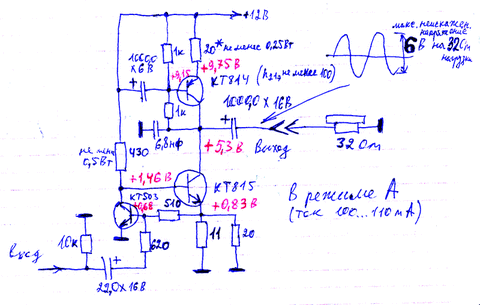 +12В
макс. неискажен.
напряжение
6В на 32Ом
нагрузки
1к
20* не менее 0,25Вт
1000,0
х 6В
+9,15
+9,75В
КТ814 (h21э не менее 100)
1к
1000,0 х 16В
6,8нф
+5,3В
Выход
32 Ом
430
0,5Вт
+1,46В
КТ815
КТ503
+0,68
510
+0,83В
В режиме А
(ток 100...110мА)
10к
620
11
20
Вход
22,0 х 16В